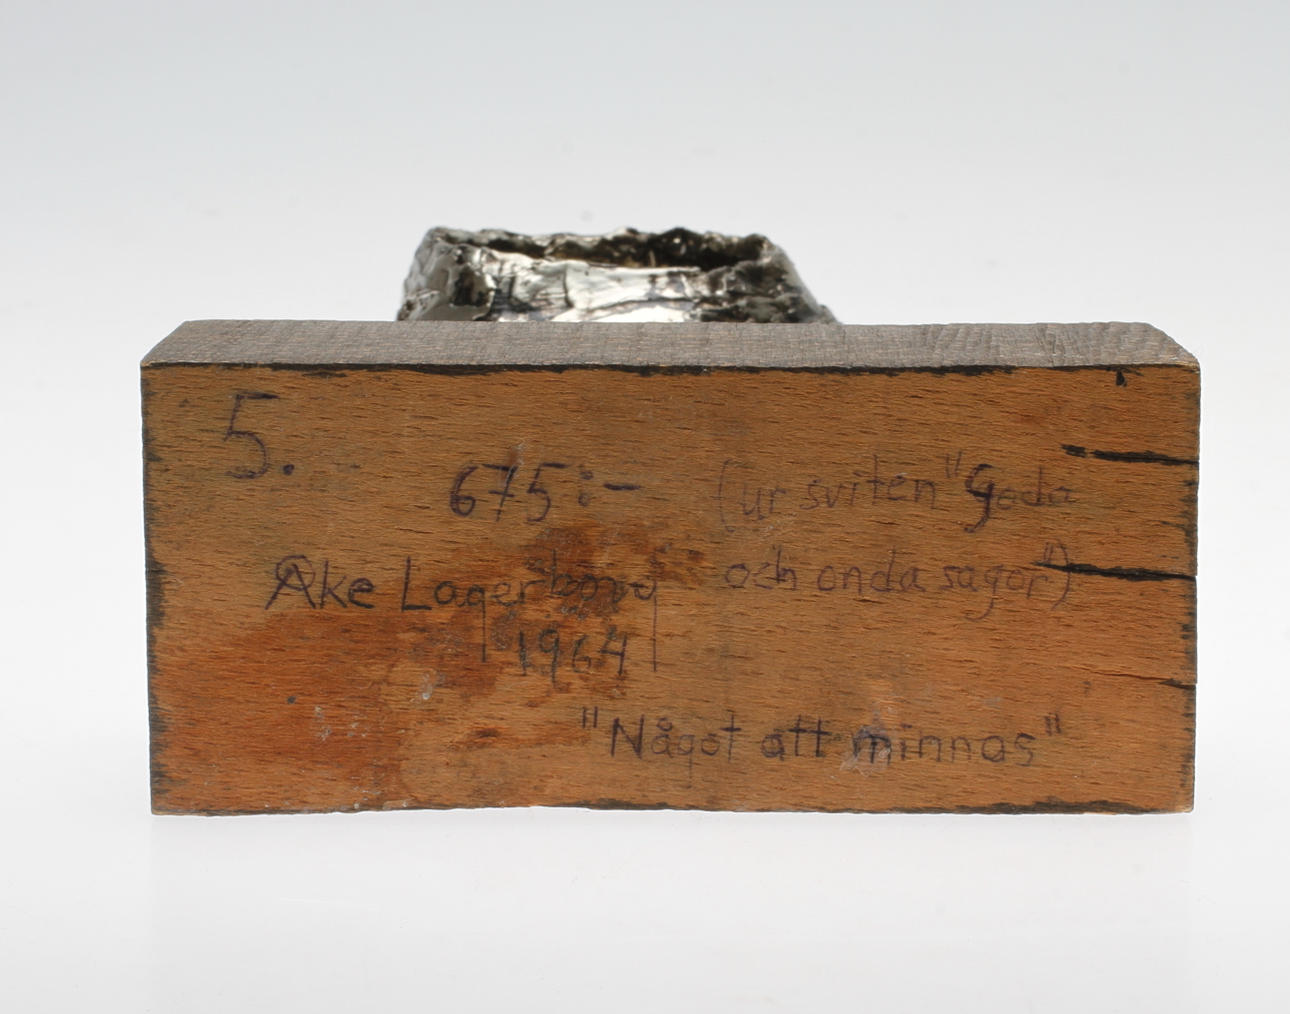 5.
675:-
Åke Lagerborg
1964
(ur sviten "Goda
och onda sagor")
"Något att minnas"